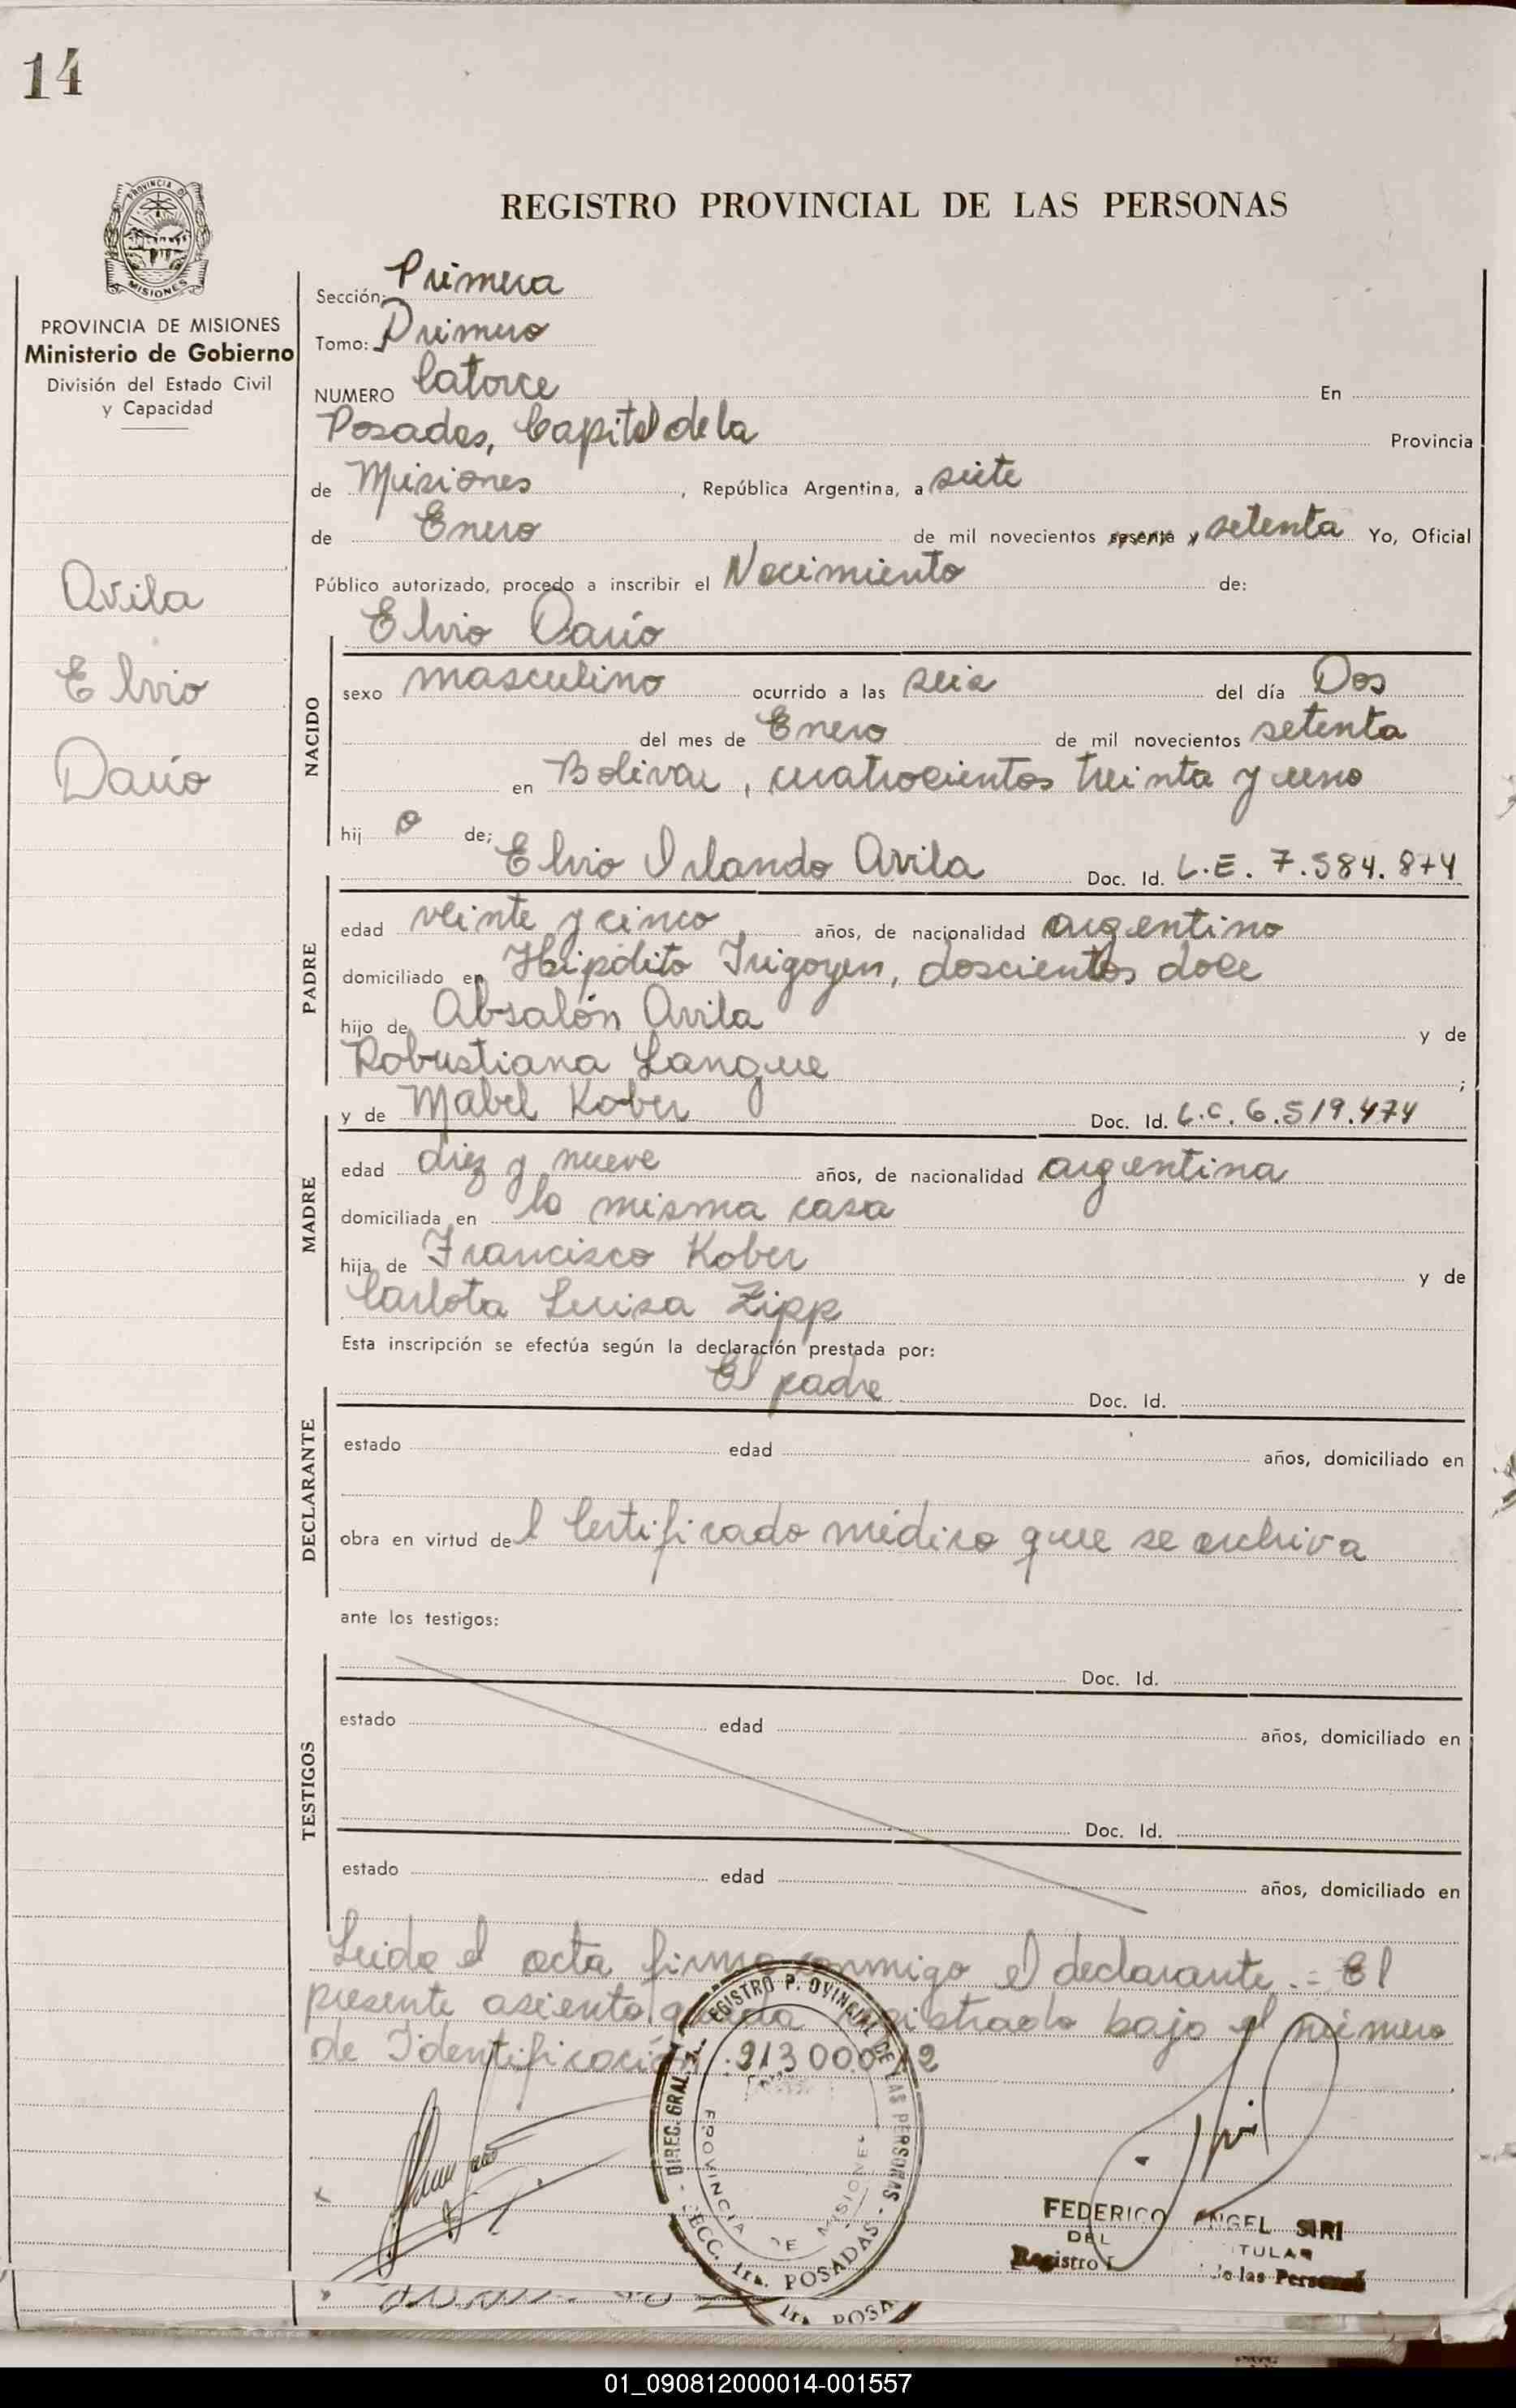 14
PROVINCIA DE MISIONES
PROVINCIA DE MISIONES
Ministerio de Gobierno
División del Estado Civil
y Capacidad
Avila
Elvio
Darío
REGISTRO PROVINCIAL DE LAS PERSONAS
Sección: Primera
Tomo: Primero
NUMERO Catorce En
Posadas, Capital de la Provincia
de Misiones, República Argentina, a siete
de Enero de mil novecientos sesenta y setenta Yo, Oficial
Público autorizado, procedo a inscribir el Nacimiento de:
Elvio Darío
NACIDO
sexo masculino ocurrido a las seis del día Dos
del mes de Enero de mil novecientos setenta
en Bolivar, cuatrocientos treinta y uno
hij o de;
Elvio Orlando Avila Doc. Id. L.E. 7.584.874
PADRE
edad veinte y cinco años, de nacionalidad argentino
domiciliado en Hipólito Irigoyen, doscientos doce
hijo de Absalón Avila y de
Robustiana Langue ;
y de Mabel Kober Doc. Id. L.C. 6.519.474
MADRE
edad diez y nueve años, de nacionalidad argentina
domiciliada en la misma casa
hija de Francisco Kober y de
Carlota Luisa Zipp
Esta inscripción se efectúa según la declaración prestada por:
El padre Doc. Id.
DECLARANTE
estado edad años, domiciliado en
obra en virtud del Certificado médico que se archiva
ante los testigos:
TESTIGOS
Doc. Id.
estado edad años, domiciliado en
Doc. Id.
estado edad años, domiciliado en
Leida el acta firma conmigo el declarante.= El
presente asiento queda registrado bajo el número
de Identificación: 21300012
DIREC. GRAL. REGISTRO P. OVINCIAL DE LAS PERSONAS - SECC. 1ra. POSADAS -
PROVINCIA DE MISIONES
FEDERICO ANGEL SIRI
TULAR
DEL
Registro de las Personas
1ra. POSA
01_090812000014-001557